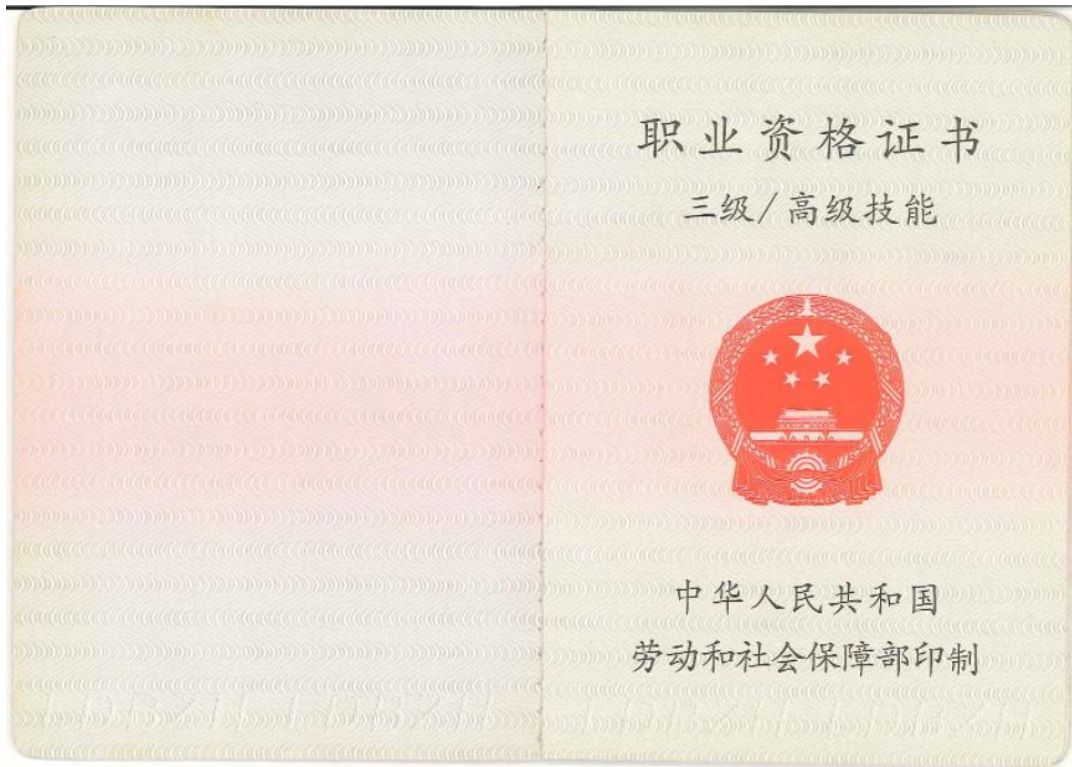 职业资格证书
三级/高级技能
中华人民共和国
劳动和社会保障部印制